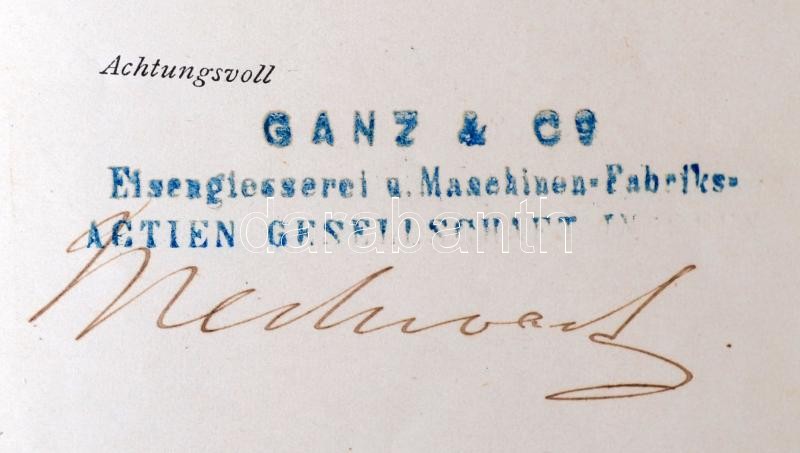 Achtungsvoll
GANZ & Co
Eisengiesserei u. Maschinen-Fabriks-
ACTIEN GESELLSCHAFT
darabanth
Mechwart